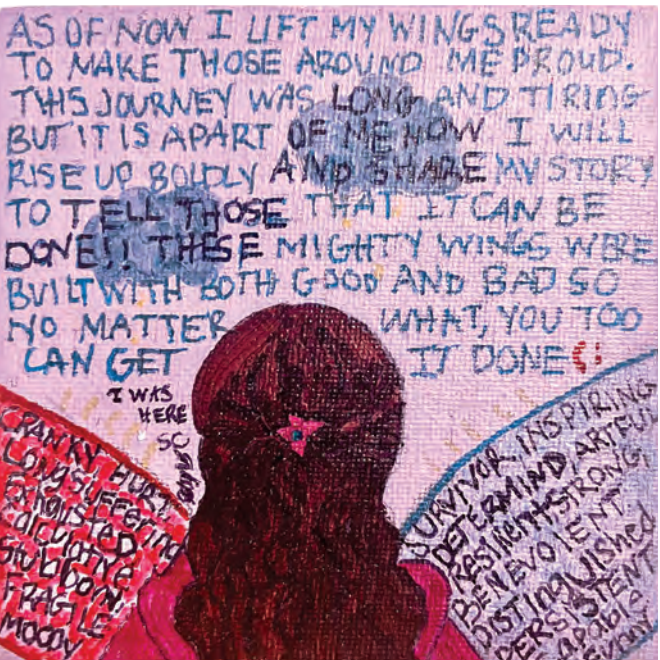 AS OF NOW I LIFT MY WINGS READY
TO MAKE THOSE AROUND ME PROUD.
THIS JOURNEY WAS LONG AND TIRING
BUT IT IS APART OF ME NOW I WILL
RISE UP BOLDLY AND SHARE MY STORY
TO TELL THOSE THAT IT CAN BE
DONE!! THESE MIGHTY WINGS WERE
BUILT WITH BOTH GOOD AND BAD SO
NO MATTER WHAT, YOU TOO
CAN GET IT DONE (:
I WAS
HERE
SC
CRANKY, HURT
Long suffering
Exhausted
Calculative
Stubborn
FRAGILE
MOODY
SURVIVOR, INSPIRING
DETERMIND, ARTFUL
RESILIENT, STRONG,
BENEVOLENT
DISTINGUISHED
PERSISTENT
Capable
Funny